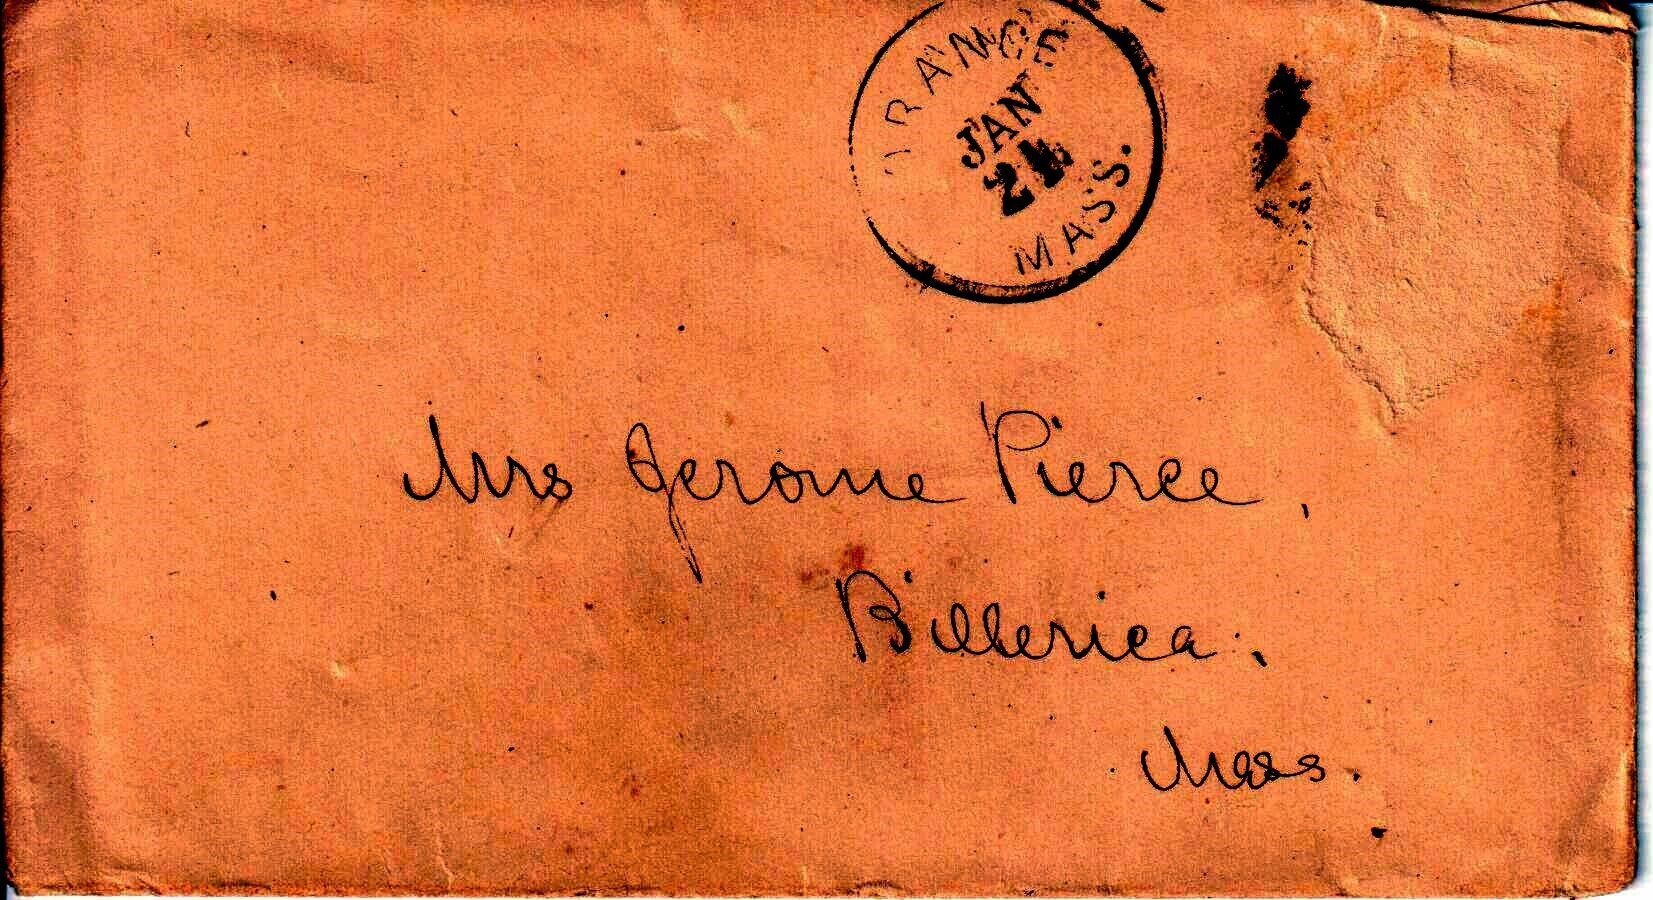 ORANGE
JAN
21
MASS.
Mrs Jerome Pierce,
Billerica.
Mass.